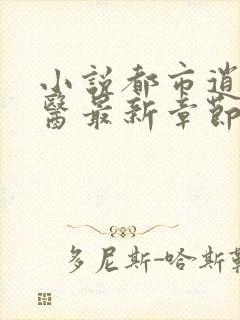 小說都市道
醫最新章節
多尼斯-哈斯